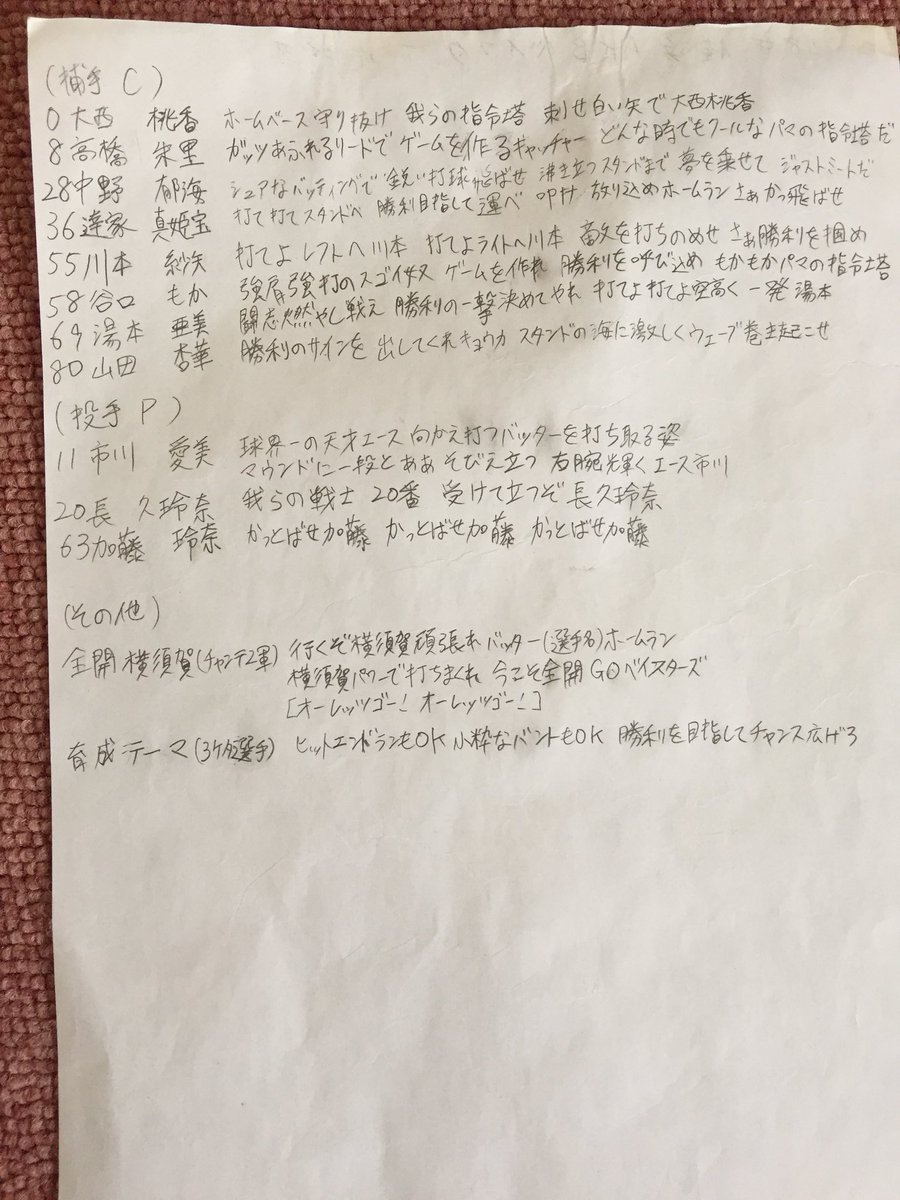 (捕手 C)
0 大西 桃香 ホームベース守り抜け 我らの指令塔 刺せ白い矢で 大西桃香
8 高橋 朱里 ガッツあふれるリードで ゲームを作るキャッチャー どんな時でもクールなパマの指令塔だ
28 中野 郁海 シュアなバッティングで 鋭い打球飛ばせ 沸き立つスタンドまで 夢を乗せて ジャストミートだ
36 達家 真姫宝 打て打てスタンドへ 勝利目指して運べ 叩け 放り込めホームラン さぁかっ飛ばせ
55 川本 紗矢 打てよ レフトへ川本 打てよライトへ川本 敵を打ちのめせ さぁ勝利を掴め
58 谷口 もか 強肩強打のスゴイヤス ゲームを作れ 勝利を呼び込め もかもかパマの指令塔
69 湯本 亜美 闘志燃やし戦え 勝利の一撃決めてやれ 打てよ打てよ空高く 一発湯本
80 山田 杏華 勝利のサインを 出してくれキョウカ スタンドの海に激しくウェーブ巻き起こせ
(投手 P)
11 市川 愛美 球界一の天才エース 向かえ打つバッターを打ち取る姿
マウンドに一段とああ そびえ立つ 右腕輝く エース市川
20 長 久玲奈 我らの戦士 20番 受けて立つぞ 長久玲奈
63 加藤 玲奈 かっとばせ加藤 かっとばせ加藤 かっとばせ加藤
(その他)
全開 横須賀(チャンテ2軍) 行くぞ横須賀頑張れバッター(選手名)ホームラン
横須賀パワーで打ちまくれ 今こそ全開 GOベイスターズ
[オーレッツゴー! オーレッツゴー!]
育成テーマ(3ケタ選手) ヒットエンドランもOK 小粋なバントもOK 勝利を目指してチャンス広げろ